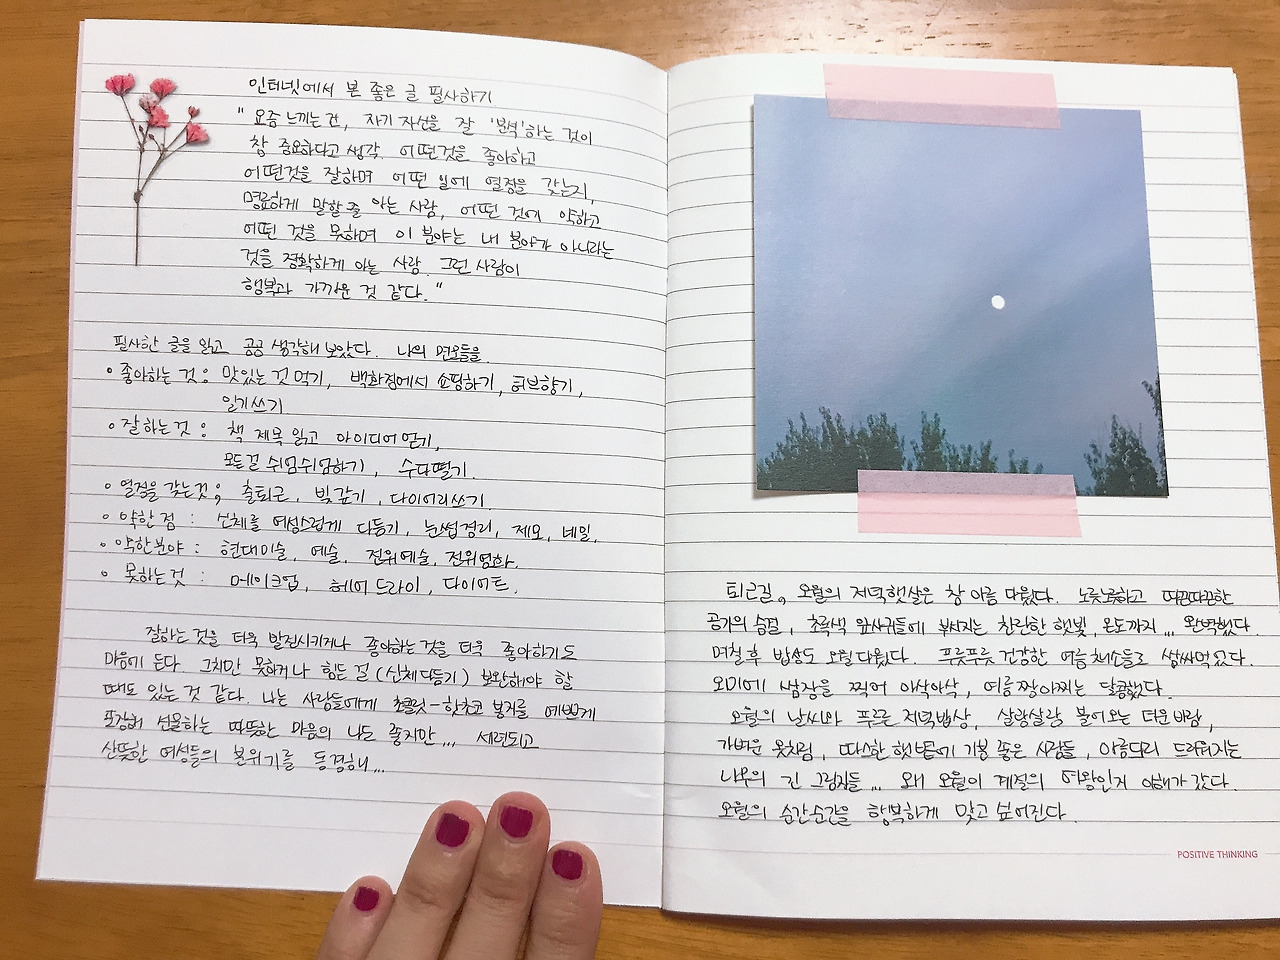 인터넷에서 본 좋은 글 필사하기
" 요즘 느끼는 건, 자기 자신을 잘 '분석'하는 것이
참 중요하다고 생각. 어떤것을 좋아하고
어떤것을 잘하며 어떤 일에 열정을 갖는지,
명료하게 말할 줄 아는 사람, 어떤 것에 약하고
어떤 것을 못하며 이 분야는 내 분야가 아니라는
것을 정확하게 아는 사람. 그런 사람이
행복과 가까운 것 같다. "
필사한 글을 읽고 곰곰 생각해 보았다. 나의 면모들을.
• 좋아하는 것 : 맛있는 것 먹기, 백화점에서 쇼핑하기, 허브향기,
일기쓰기
• 잘하는 것 : 책 제목 읽고 아이디어 얻기,
모든걸 쉬엄쉬엄하기, 수다떨기.
• 열정을 갖는것 : 출퇴근, 빚갚기, 다이어리쓰기.
• 약한 점 : 신체를 여성스럽게 다듬기, 눈썹정리, 제모, 네일.
• 약한분야 : 현대미술, 예술, 전위예술, 전위영화.
• 못하는것 : 메이크업, 헤어 드라이, 다이어트.
잘하는 것을 더욱 발전시키거나 좋아하는 것을 더욱 좋아하기도
마음에 든다. 그치만 못하거나 힘든 걸 (신체다듬기) 보완해야 할
때도 있는 것 같다. 나는 사람들에게 초콜릿-핫초코 봉지를 예쁘게
포장해 선물하는 따뜻한 마음의 나도 좋지만... 세련되고
산뜻한 여성들의 분위기를 동경해...
퇴근길, 오월의 저녁햇살은 참 아름다웠다. 노릇노릇하고 따끈따끈한
공기의 숨결, 초록색 잎사귀들에 부서지는 찬란한 햇빛, 온도까지... 완벽했다.
며칠후 밥상도 오월다웠다. 푸릇푸릇 건강한 여름 채소들로 쌈싸먹었다.
오이에 쌈장을 찍어 아삭아삭, 여름짱아찌는 달콤했다.
오월의 날씨와 푸르른 저녁밥상, 살랑살랑 불어오는 더운 바람,
가벼운 옷차림, 따스한 햇볕에 기분 좋은 사람들, 아름드리 드리워지는
나무의 긴 그림자들... 왜 오월이 계절의 여왕인지 이해가 갔다.
오월의 순간순간을 행복하게 맞고 싶어진다.
POSITIVE THINKING